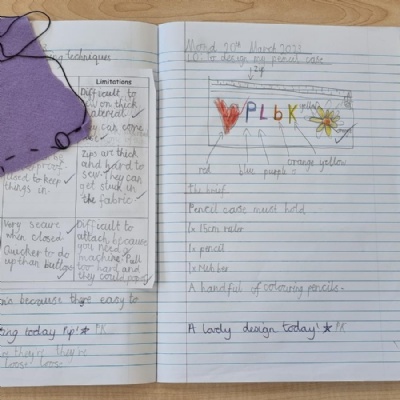 techniques
Limitations
Difficult to
sew on thick
material
They can come
Zips are thick
and hard to
sew. They can
get stuck in
the fabric
used to keep
things in.
Very secure
when closed
Quicher to do
up than buttons
Difficult to
attach because
you need a
machine. Pull
too hard and
they could
because there easy to
today
they're they're
loose loose
20th March 2023
L.O. To design my pencil case
zip
PLbK
yellow
orange
red
blue
purple
orange yellow
The brief
Pencil case must hold
1x 15cm ruler
1x pencil
1x rubber
A handful of colouring pencils.
A lovely design today! PK